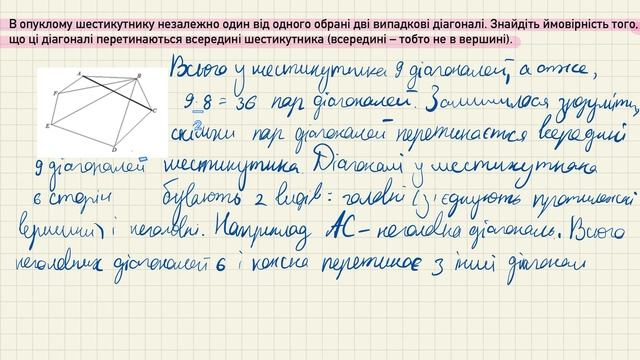 В опуклому шестикутнику незалежно один від одного обрані дві випадкові діагоналі. Знайдіть ймовірність того,
що ці діагоналі перетинаються всередині шестикутника (всередині – тобто не в вершині).
Всього у шестикутника 9 діагоналей, а отже,
9·8/2 = 36 пар діагоналей. Залишилося зрозуміти,
скільки пар діагоналей перетинається всередині
9 діагоналей шестикутика. Діагоналі у шестикутника
6 сторін бувають 2 видів: головні (з'єднують протилежні
вершини) і неголовні. Наприклад AC – неголовна діагональ. Всього
неголовних діагоналей 6 і кожна перетинає 3 інші діагоналі
A
B
F
C
E
D